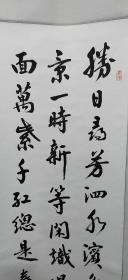 勝日尋芳泗水濱
景一時新等閑識
面萬紫千紅總是春